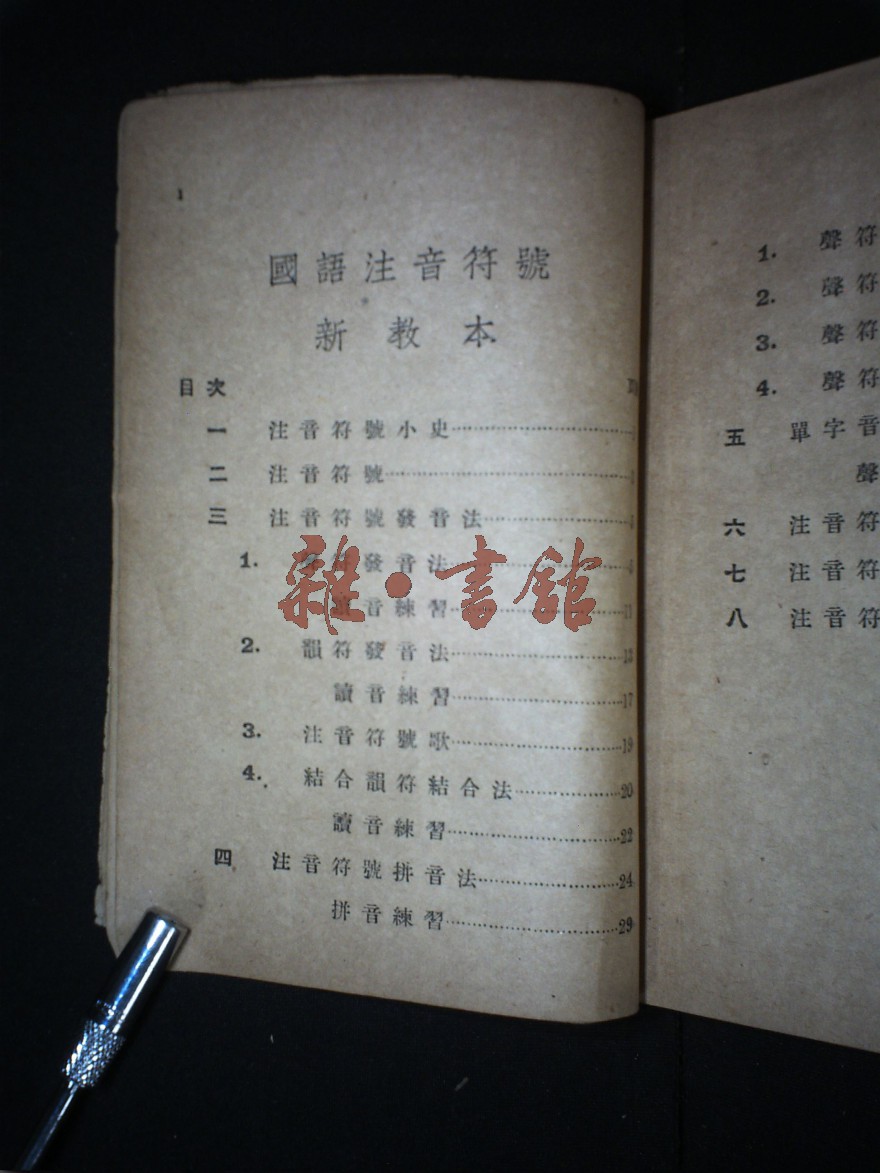 1
國語注音符號
新教本
目次
一 注音符號小史
二 注音符號
三 注音符號發音法
1. 聲符發音法
讀音練習 11
2. 韻符發音法 13
讀音練習 17
3. 注音符號歌 19
4. 結合韻符結合法 20
讀音練習 22
四 注音符號拼音法 24
拼音練習 29
雜·書館
1. 聲符
2. 聲符
3. 聲符
4. 聲符
五 單字音
聲
六 注音符
七 注音符
八 注音符